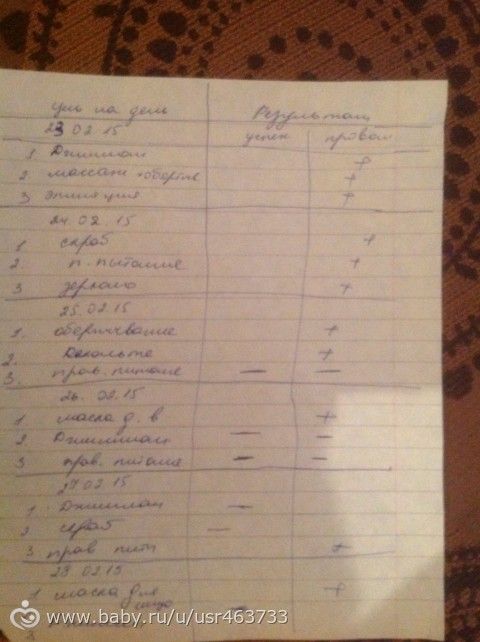 Цель на день Результат
23 02 15 успех провал
1 Джиллиан +
2 массаж +обертые +
3 эпиляция +
24 02 15
1 скраб +
2 п. питание +
3 зеркало +
25. 02 15
1. обертывание +
2. Декольте +
3. прав. питание — —
26. 02. 15
1 маска д. в +
2 Джиллиан — —
3 прав. питание — —
27 02 15
1 Джиллан —
2 скраб —
3 прав пит +
28 02. 15
1 маска для +
лица
www.baby.ru/u/usr463733